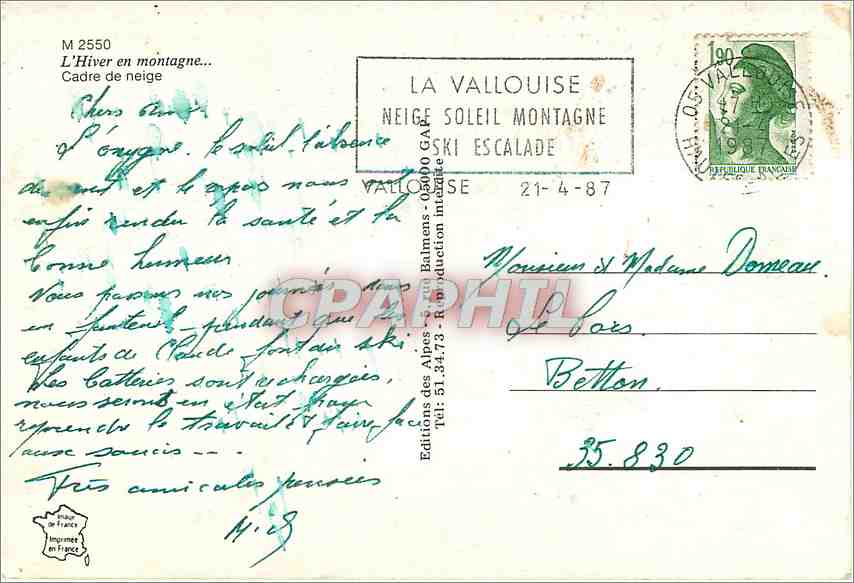 M 2550
L'Hiver en montagne...
Cadre de neige
Chers Amis
L'oxygène, le soleil, l'absence
de et le repos nous ont
enfin rendu la santé et la
bonne humeur
Nous passons nos journées dans
un fauteuil pendant que les
enfants de Claude font du ski
Les batteries sont rechargées,
nous serons en état pour
reprendre le travail et faire face
aux soucis ...
Très amicales pensées
Image
de France
Imprimée
en France
Editions des Alpes - 5, rue Balmens - 05000 GAP
Tél: 51.34.73 - Reproduction interdite
LA VALLOUISE
NEIGE SOLEIL MONTAGNE
SKI ESCALADE
VALLOUISE 21-4-87
1,90
REPUBLIQUE FRANÇAISE
05 VALLOUISE
1987
Monsieur & Madame Domeau.
Le Pars.
Betton.
35.830
CPAPHIL